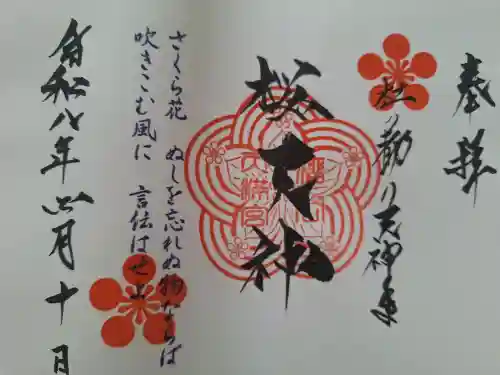 奉拝
天神
桜天神
さくら花 ぬしを忘れぬ物ならば
吹きこむ風に 言伝はせよ
令和八年四月十日